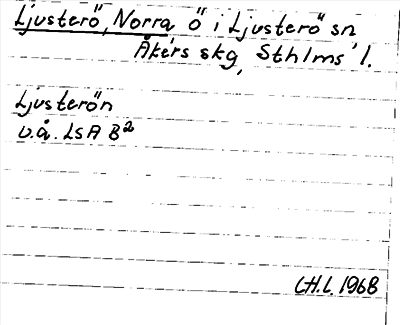 Ljusterö, Norra ö i Ljusterö sn
Åkers skg, Sthlms l.
Ljusterön
u.å. LSA B2
C.H.L. 1968